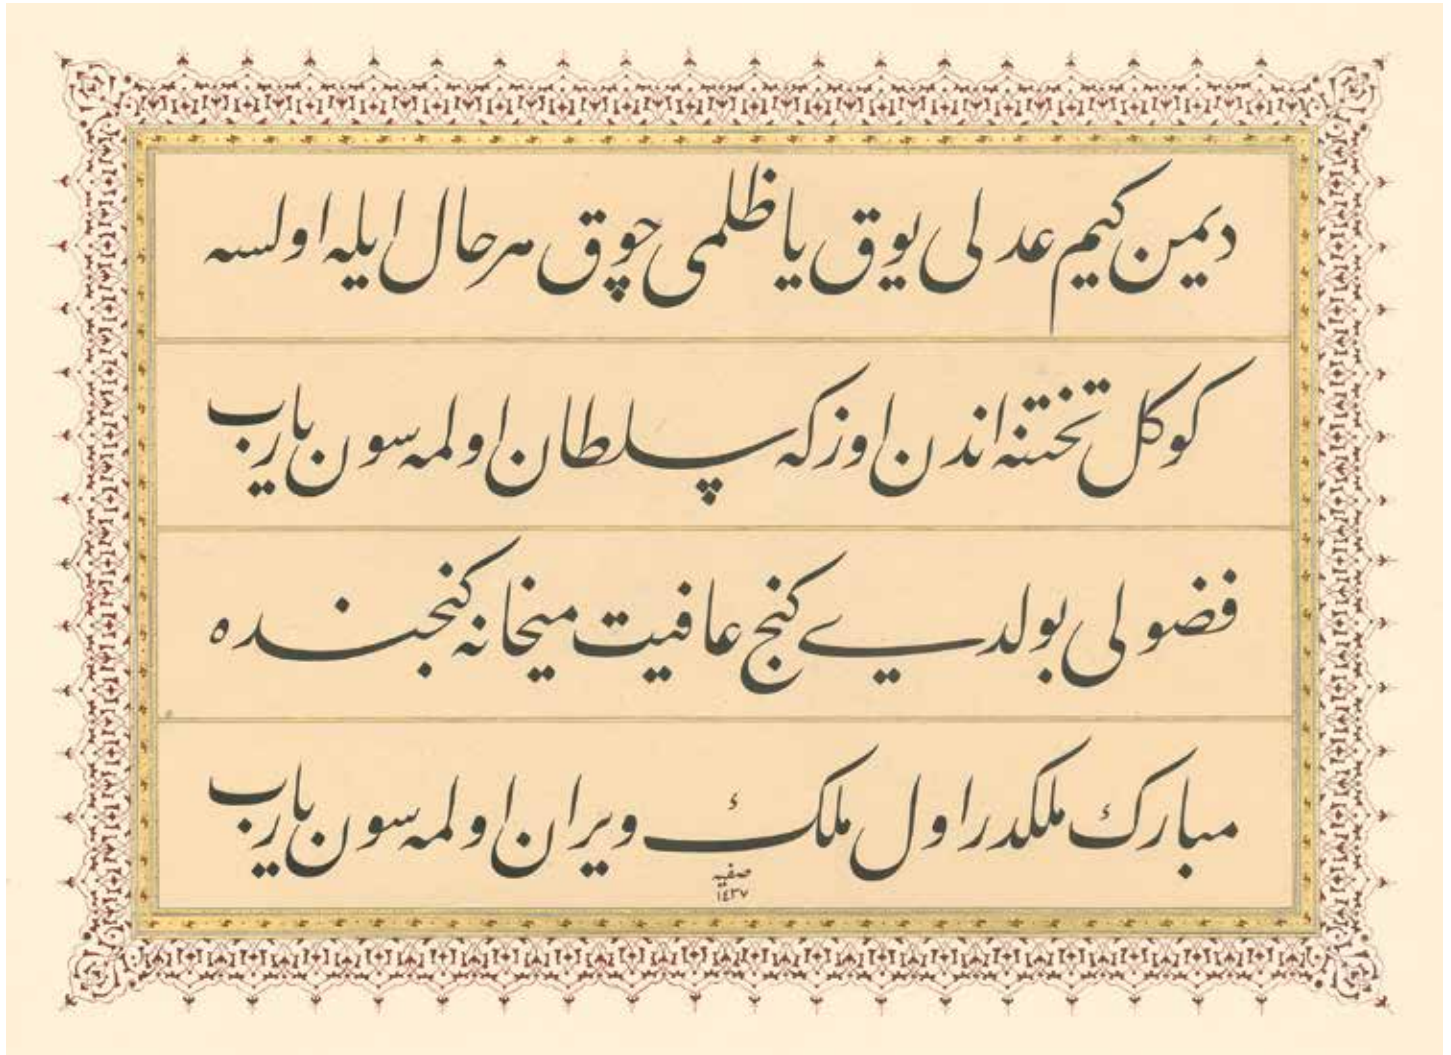 دیمن کیم عدلی یوق یا ظلمی چوق هر حال ایله اولسه
کوکل تختنه اندن اوزکه سلطان اولمه سون یارب
فضولی بولدی کنج عافیت میخانه کنجنده
مبارک ملکدر اول ملک ویران اولمه سون یارب
صفیه
١٤٣٧